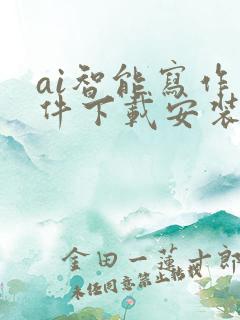 ai智能寫作
件下載安裝
金田一蓮十郎
未经同意禁止转载